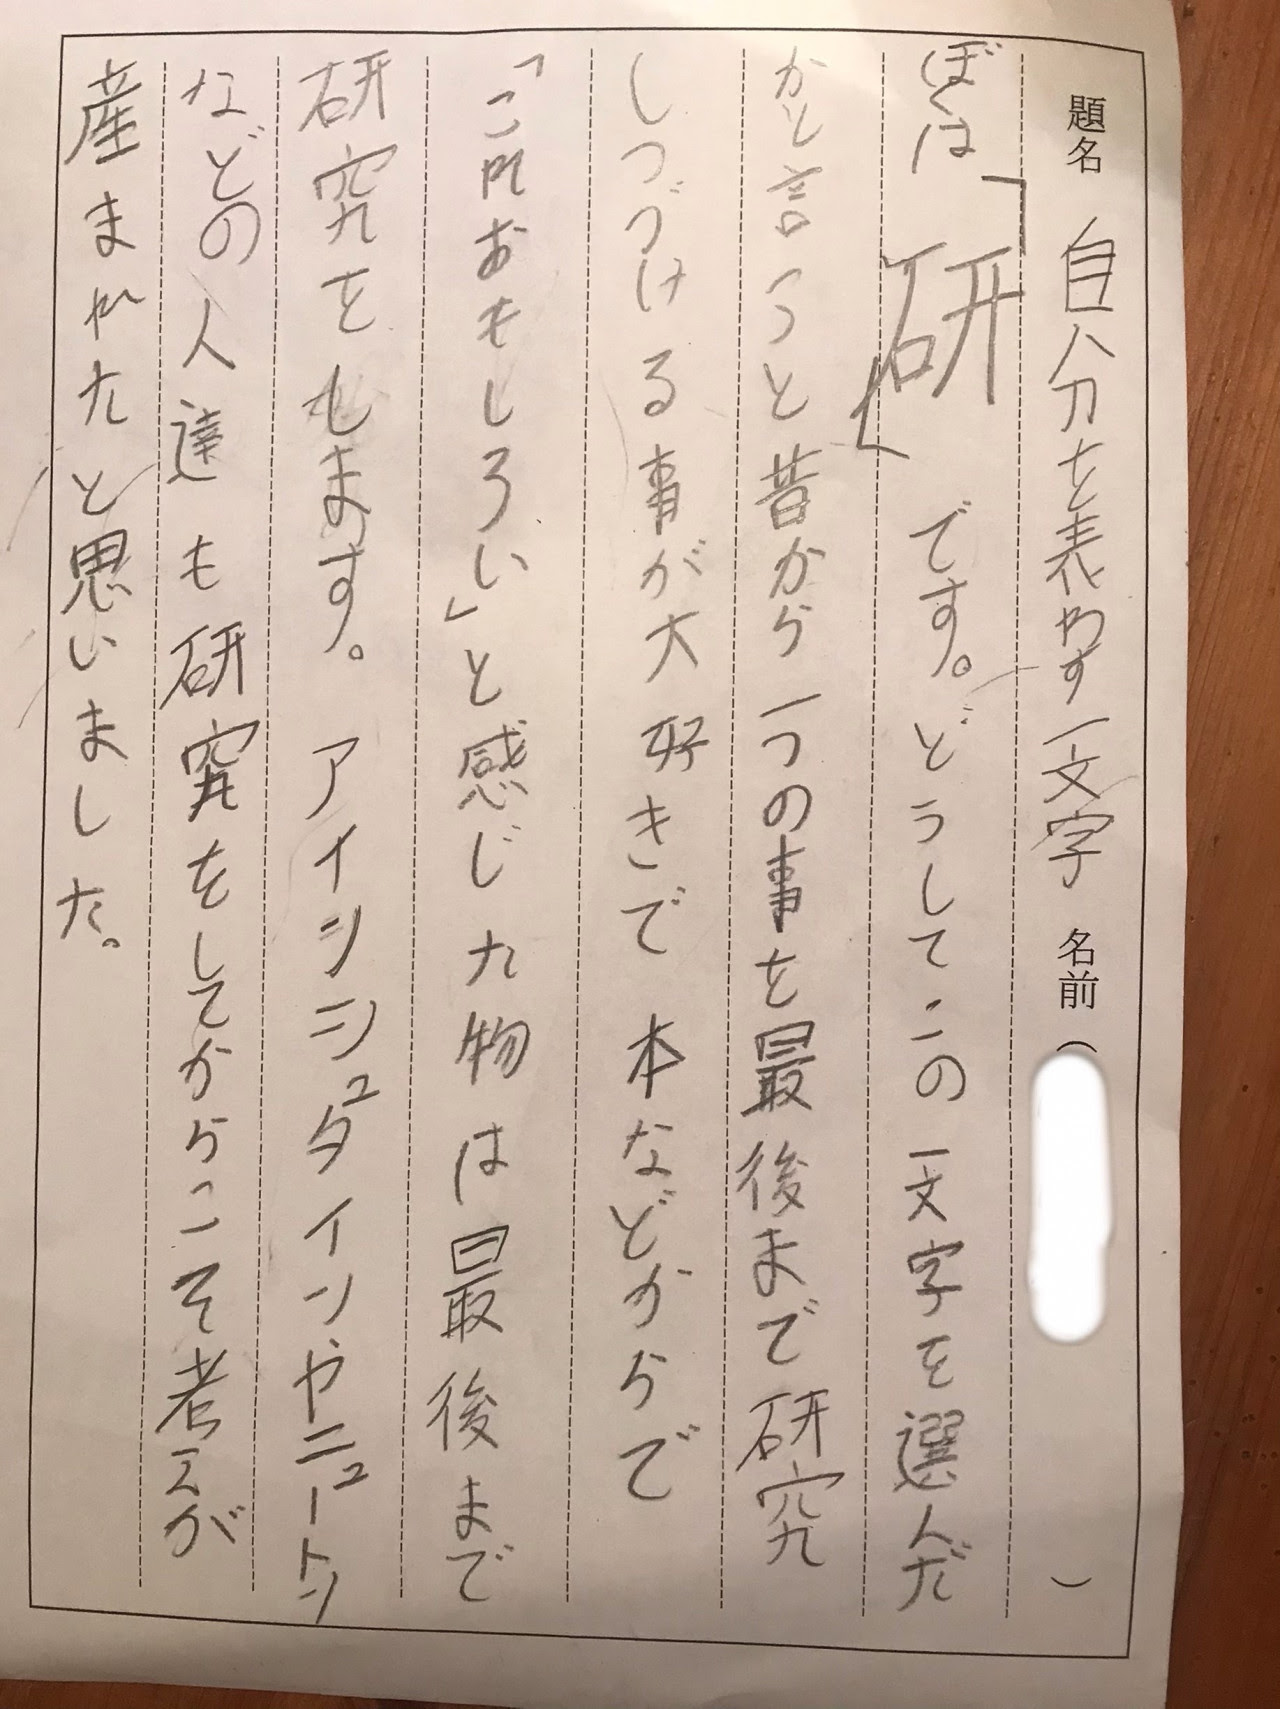 題名 自分を表やす一文字 名前( )
ぼくは「研」です。どうしてこの一文字を選んだ
かと言うと昔から一つの事を最後まで研究
しつづける事が大好きで本などからで
「これおもしろい」と感じた物は最後まで
研究をもします。アインシュタインやニュートン
などの人達も研究をしてからこそ考えが
産まれたと思いました。